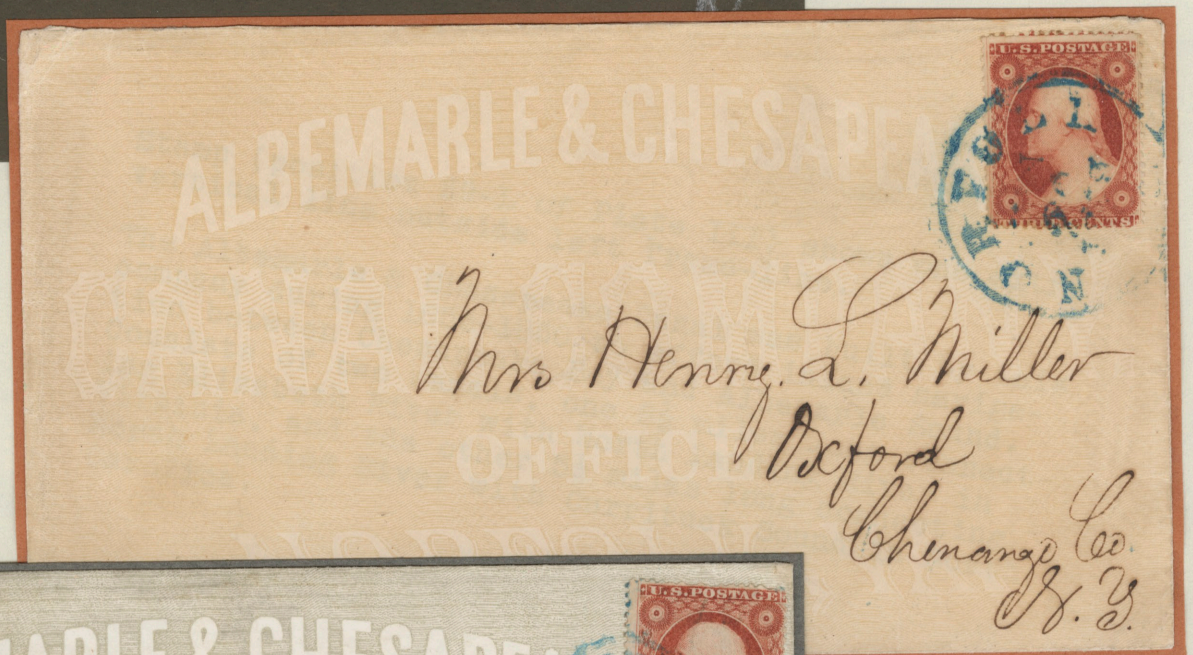 ALBEMARLE & CHESAPEA
CANAL COMPANY
OFFICE
NORFOLK, VA
U.S. POSTAGE
THREE CENTS
NORFOLK
Mrs Henry. L. Miller
Oxford
Chenango Co.
N. Y.
MARLE & CHESAPEA
U.S. POSTAGE